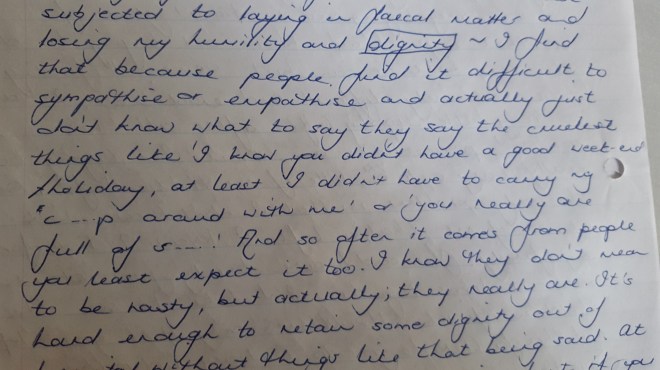 subjected to laying in faecal matter and
losing my humility and dignity ~ I find
that because people find it difficult to
sympathise or empathise and actually just
don't know what to say they say the cruelest
things like 'I know you didn't have a good week-end
/holiday, at least I didn't have to carry my
"c....p around with me' or 'you really are
full of s.....' And so often it comes from people
you least expect it too. I know they don't mean
to be nasty, but actually, they really are. It's
hard enough to retain some dignity out of
without things like that being said. At
if you